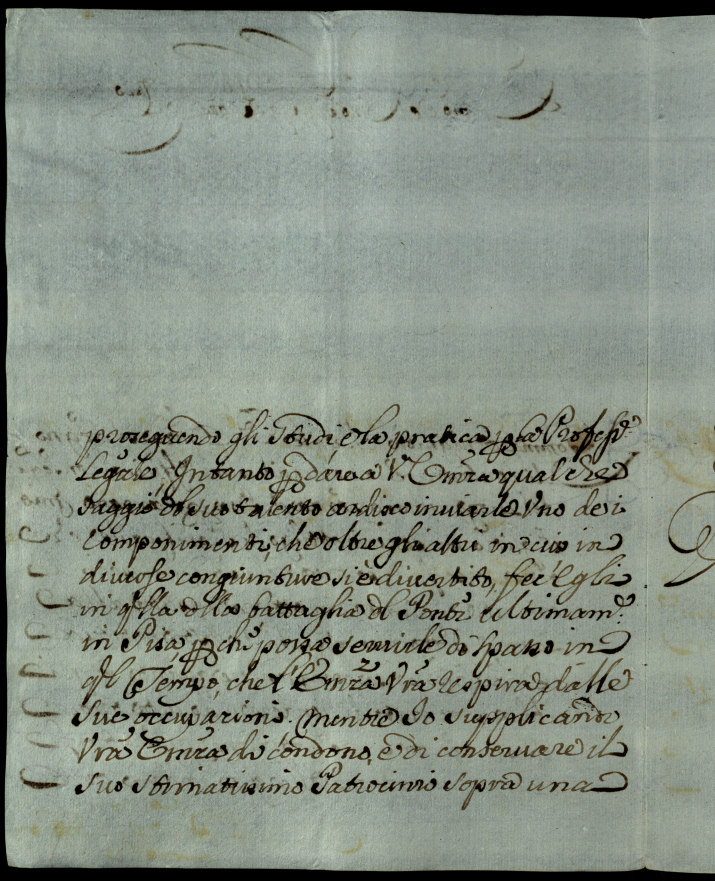 proseguendo gli Studi e la pratica p la Profess.e
Legale. Intanto p dare a V. Emza qualche
saggio del suo talento ardisco inviarle Uno dei
Componimenti, che oltre gli altri in cui in
diverse congiunture si è divertito, fec'Egli
in qlla dlla battaglia dl Ponte ultimam.e
in Pisa p che possa servirle di spasso in
ql Tempo, che l'Emza Vra respira dalle
sue occupazioni. Mentre Io supplicando
Vra Emza di condono, e di conservare il
suo stimatissimo Patrocinio sopra una